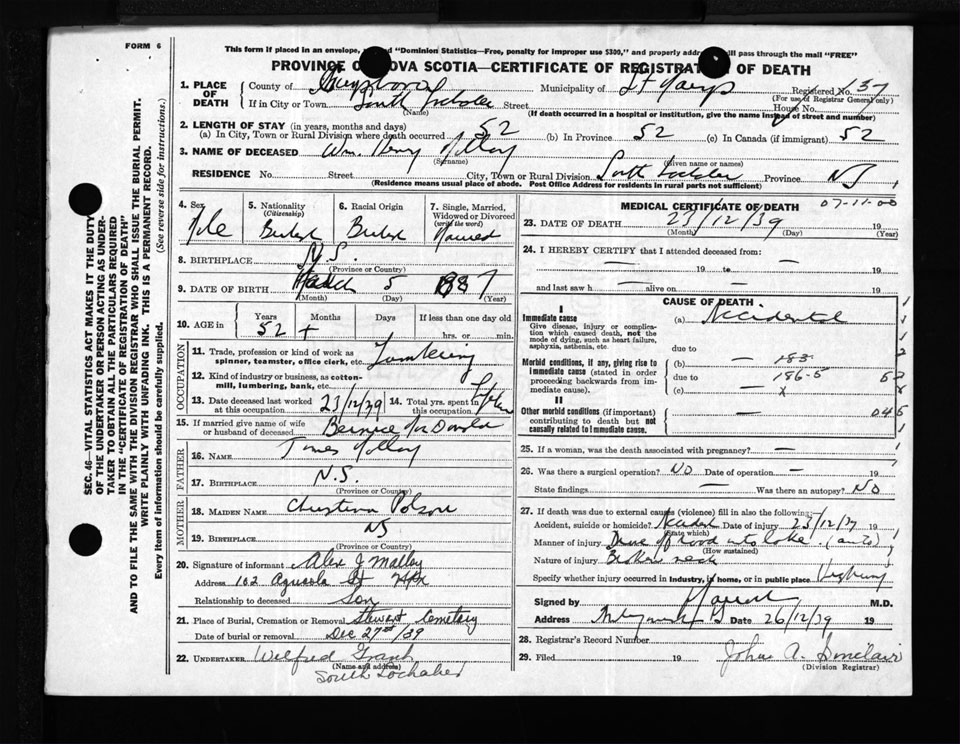 FORM 6
This form if placed in an envelope, "Dominion Statistics—Free, penalty for improper use $300," and properly addr will pass through the mail "FREE"
PROVINCE O OVA SCOTIA—CERTIFICATE OF REGISTRAT OF DEATH
1. PLACE OF DEATH
County of Guysboro Municipality of St Marys Registered No. 137
(For use of Registrar General only)
If in City or Town South Lochaber Street House No.
(Name) (If death occurred in a hospital or institution, give the name instead of street and number)
2. LENGTH OF STAY (in years, months and days)
(a) In City, Town or Rural Division where death occurred 52 (b) In Province 52 (c) In Canada (if immigrant) 52
3. NAME OF DECEASED Wm. Henry Malloy
(Surname) (Given name or names)
RESIDENCE No. Street City, Town or Rural Division South Lochaber Province NS
(Residence means usual place of abode. Post Office Address for residents in rural parts not sufficient)
4. Sex Male
5. Nationality (Citizenship) British
6. Racial Origin British
7. Single, Married, Widowed or Divorced (write the word) Married
8. BIRTHPLACE N.S.
(Province or Country)
9. DATE OF BIRTH March 5 1887
(Month) (Day) (Year)
10. AGE in Years Months Days If less than one day old
52 + hrs. or min.
OCCUPATION
11. Trade, profession or kind of work as spinner, teamster, office clerk, etc. Lumbering
12. Kind of industry or business, as cotton-mill, lumbering, bank, etc.
13. Date deceased last worked at this occupation 23/12/39 14. Total yrs. spent in this occupation
15. If married give name of wife or husband of deceased Bernice McDonald
FATHER
16. NAME James Malloy
17. BIRTHPLACE N.S.
(Province or Country)
MOTHER
18. MAIDEN NAME Christina Polson
19. BIRTHPLACE NS
(Province or Country)
20. Signature of informant Alex J Malloy
Address 102 Agricola St Hfx
Relationship to deceased Son
21. Place of Burial, Cremation or Removal Stewart Cemetary
Date of burial or removal Dec 27th/39
22. UNDERTAKER Wilfred Grant
(Name and address)
South Lochaber
MEDICAL CERTIFICATE OF DEATH 07-11-00
23. DATE OF DEATH 23/12/39 19
(Month) (Day) (Year)
24. I HEREBY CERTIFY that I attended deceased from:
— 19 to —
and last saw h — alive on — 19
CAUSE OF DEATH
I
Immediate cause (a) Accidental
Give disease, injury or complication which caused death, not the mode of dying, such as heart failure, asphyxia, asthenia, etc.
due to
Morbid conditions, if any, giving rise to immediate cause (stated in order proceeding backwards from immediate cause).
(b) —
due to 186-5
(c) —
II
Other morbid conditions (if important) contributing to death but not causally related to immediate cause. —
25. If a woman, was the death associated with pregnancy? —
26. Was there a surgical operation? NO Date of operation — 19
State findings — Was there an autopsy? NO
27. If death was due to external causes (violence) fill in also the following:
Accident, suicide or homicide? Accident Date of injury 23/12/39 19
(State which)
Manner of injury Drove off road into lake. (auto)
(How sustained)
Nature of injury Broken neck
Specify whether injury occurred in industry, in home, or in public place Highway
Signed by M.D.
Address Date 26/12/39 19
28. Registrar's Record Number
29. Filed 19 John A. Sinclair
(Division Registrar)
SEC. 46—VITAL STATISTICS ACT MAKES IT THE DUTY
OF THE UNDERTAKER OR PERSON ACTING AS UNDER-
TAKER TO OBTAIN ALL THE PARTICULARS REQUIRED
IN THE "CERTIFICATE OF REGISTRATION OF DEATH"
AND TO FILE THE SAME WITH THE DIVISION REGISTRAR WHO SHALL ISSUE THE BURIAL PERMIT.
WRITE PLAINLY WITH UNFADING INK. THIS IS A PERMANENT RECORD.
Every item of information should be carefully supplied. (See reverse side for instructions.)